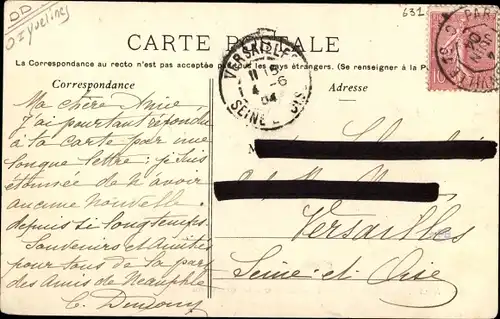 DD
Yvelines
631
CARTE POSTALE
La Correspondance au recto n'est pas acceptée par tous les pays étrangers. (Se renseigner à la P
Correspondance
Adresse
VERSAILLES
11 15
4 -6
04
SEINE
PARIS
10
Ma chère Amie,
J'ai pourtant répondu
à ta carte par une
longue lettre; je suis
étonnée de n'avoir
aucune nouvelle
depuis si longtemps.
Souvenirs et Amitiés
pour tous de la part
des Amis de Neauphle
M
Versailles
Seine-et-Oise